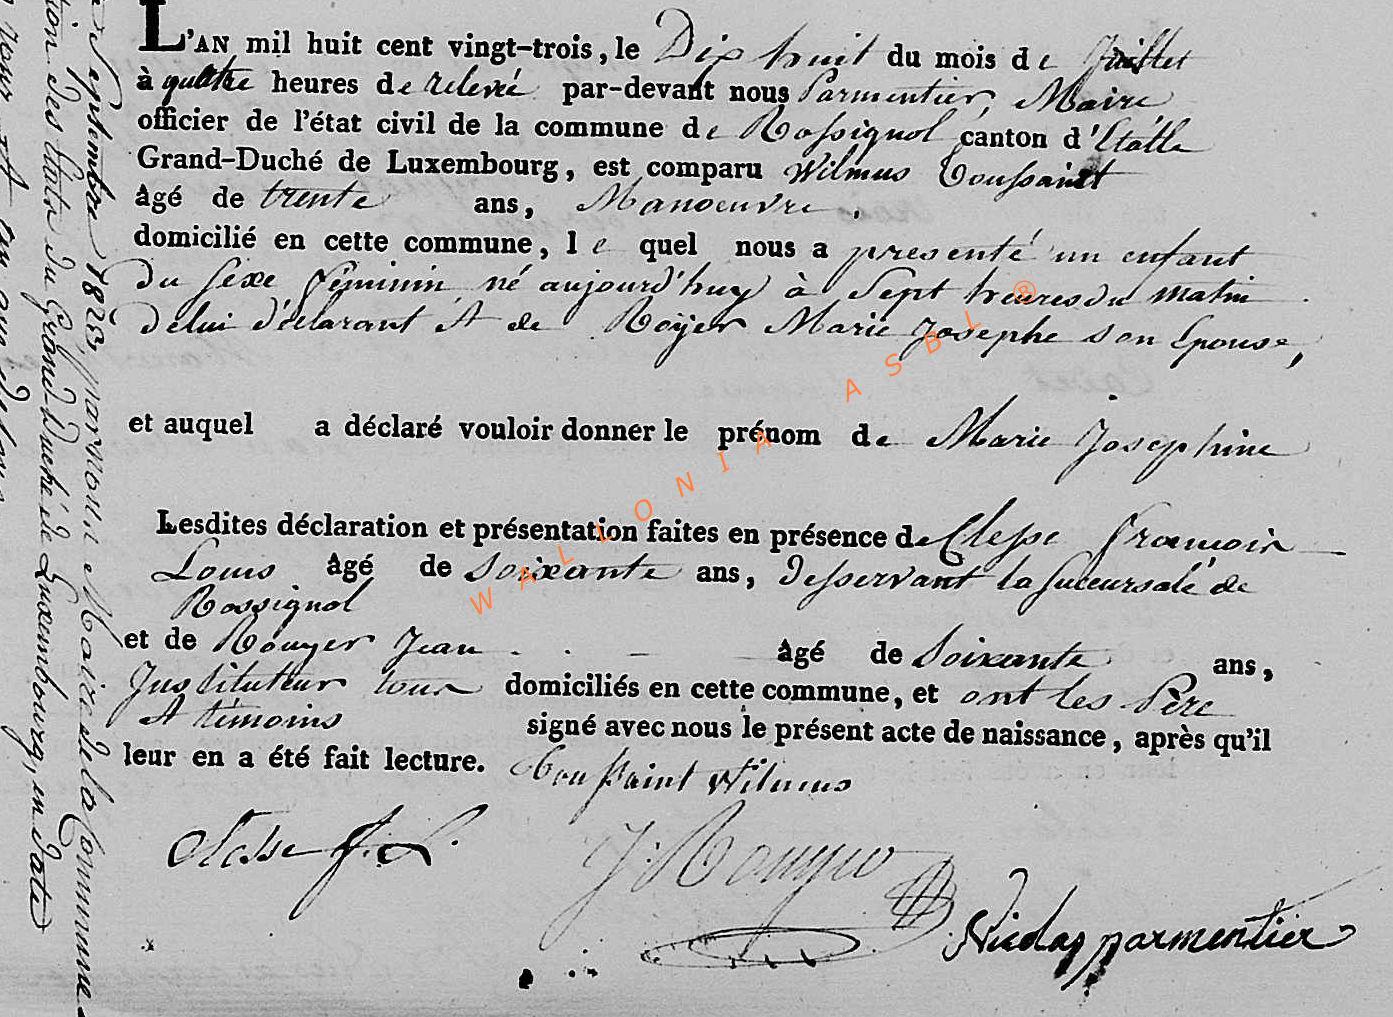 L'AN mil huit cent vingt-trois, le Dix huit du mois de Juillet
à quatre heures de relevé par-devant nous Parmentier, Maire
officier de l'état civil de la commune de Rossignol canton d'Etalle
Grand-Duché de Luxembourg, est comparu Wilmus Toussaint
âgé de trente ans, Manoeuvre,
domicilié en cette commune, le quel nous a presenté un enfant
du sexe féminin né aujourd'huy à Sept heures du matin
de lui déclarant et de Royer Marie Josephe son Epouse,
et auquel a déclaré vouloir donner le prénom de Marie Josephine
Lesdites déclaration et présentation faites en présence de François
Louis âgé de Soixante ans, desservant la succursale de
Rossignol
et de Rouyer Jean âgé de Soixante ans,
Instituteur tous domiciliés en cette commune, et ont les Père
et témoins signé avec nous le présent acte de naissance, après qu'il
leur en a été fait lecture. Toussaint Wilmus
J. Rouyer
Nicolas parmentier
WALLONIA ASBL ®
Septembre 1823, par nous Maire de la Commune
des Etats du Grand Duché de Luxembourg, en date